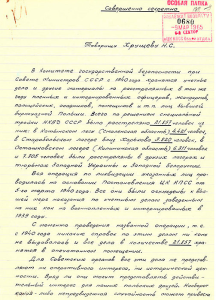 Совершенно секретно
ОСОБАЯ ПАПКА
Товарищу Хрущеву Н.С.
В Комитете государственной безопасности при
Совете Министров СССР с 1940 года хранятся учетные
дела и другие материалы на расстрелянных в том же
году пленных и интернированных офицеров, жандармов,
полицейских, осадников, помещиков и т.п. лиц бывшей
буржуазной Польши. Всего по решениям специальной
тройки НКВД СССР было расстреляно 21.857 человек, из
них: в Катынском лесу (Смоленская область) 4.421 человек,
в Старобельском лагере близ Харькова 3.820 человек, в
Осташковском лагере (Калининская область) 6.311 человек
и 7.305 человек были расстреляны в других лагерях и
тюрьмах Западной Украины и Западной Белоруссии.
Вся операция по ликвидации указанных лиц про-
водилась на основании Постановления ЦК КПСС от
5-го марта 1940 года. Все они были осуждены к выс-
шей мере наказания по учетным делам, заведенным
на них как на военнопленных и интернированных в
1939 году.
С момента проведения названной операции, т.е.
с 1940 года никаких справок по этим делам никому
не выдавалось и все дела в количестве 21.857 хра-
нятся в опечатанном помещении.
Для Советских органов все эти дела не представ-
ляют ни оперативного интереса, ни исторической цен-
ности. Вряд ли они могут представлять действитель-
ный интерес для наших польских друзей. Наоборот
какая-либо непредвиденная случайность может привести